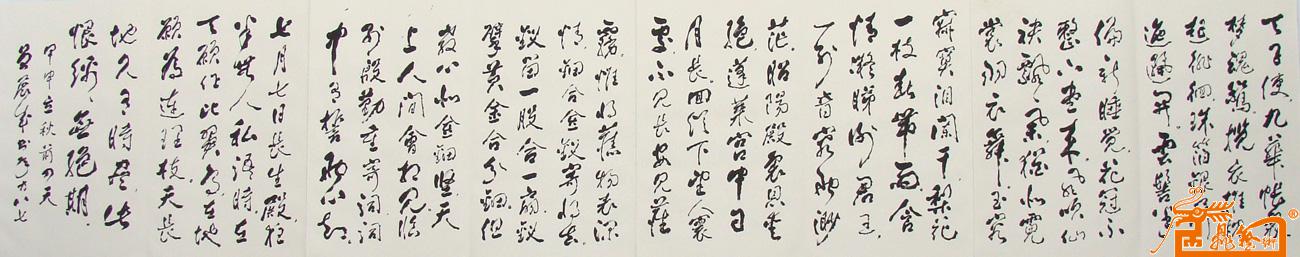 天子使九華帳裏
夢魂驚攬衣推枕
起徘徊珠箔銀屏
迤邐開雲鬢半
偏新睡覺花冠不
整下堂來風吹仙
袂飄〻舉猶似霓
裳羽衣舞玉容
寂寞淚闌干梨花
一枝春帶雨含
情凝睇謝君王
一別音容兩渺
茫昭陽殿裏恩愛
絕蓬萊宮中日
月長回頭下望人寰
處不見長安見塵
霧惟將舊物表深
情鈿合金釵寄將去
釵留一股合一扇釵
擘黃金合分鈿但
教心似金鈿堅天
上人間會相見臨
別殷勤重寄詞詞
中有誓兩心知
七月七日長生殿夜
半無人私語時在
天願作比翼鳥在地
願為連理枝天長
地久有時盡此
恨綿〻無絕期
甲申立秋前四天